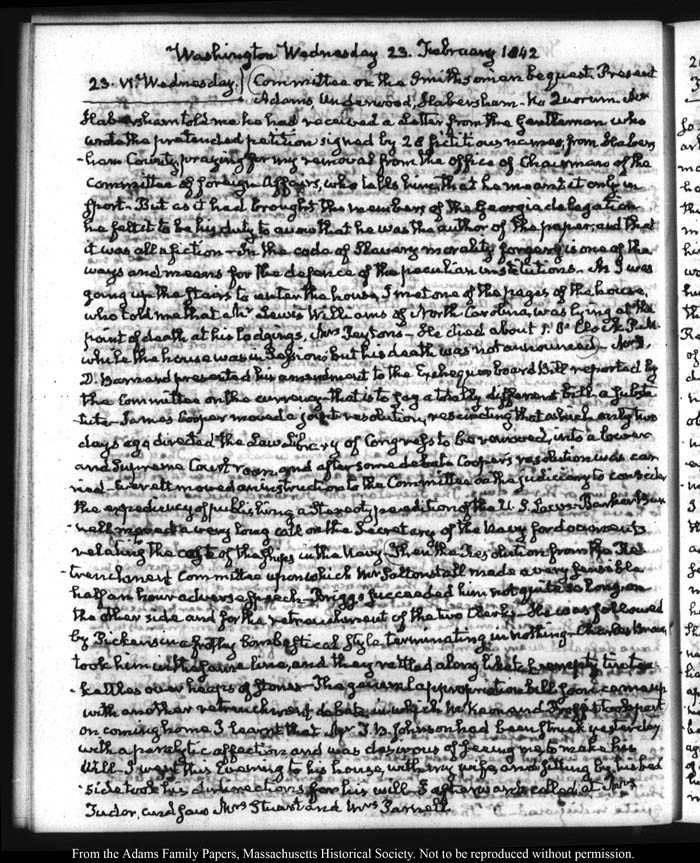 Washington Wednesday 23. February 1842
23. VI. Wednesday. Committee on the Smithsonian bequest. Present
Adams, Underwood, Habersham. No Quorum. Mr
Habersham told me he had received a Letter from the Gentleman who
wrote the pretended petition signed by 28 fictitious names, from Habers
-ham County, praying for my removal from the office of Chairman of the
Committee of foreign Affairs, who tells him that he meant it only in
sport. But as it had brought the members of the Georgia delegation
he felt it to be his duty to avow that he was the author of the paper, and that
it was all a fiction. In the code of Slavery morality forgery is one of the
ways and means for the defence of the peculiar institutions. As I was
going up the stairs to enter the house, I met one of the pages of the house,
who told me that Mr Lewis Williams of North Carolina, was lying at the
point of death at his lodgings, Mrs Peyton's. He died about 1. O'Clock P.M.
while the house was in Session, but his death was not announced. Mr D.
D. Barnard presented his amendment to the Exchequer board Bill reported by
the Committee on the currency. that is to say a totally different bill a substi
tute. James Cooper moved a joint resolution, rescinding that which only two
days ago directed the Law Library of Congress to be removed, into a lower
and Supreme Court room and after some debate Coopers resolution was car
ried. Everett moved an instruction to the Committee on the judiciary to consider
the expediency of publishing a Stereotype edition of the U.S. Laws. Barker Bur
nell moved a very long call on the Secretary of the Navy for documents
relating the cost of the ships in the Navy. Then the Resolution from the Re
-trenchment Committee upon which Mr Saltonstall made a very sensible
half an hour adverse speech. Briggs succeeded him not quite so long, on
the other side and for the retrenchment of the two Clerks. He was followed
by Pickens in a frothy bombastical style, terminating in nothing. Charles Brown
took him in the same line, and they rattled along like two empty tin tea
-kettles over heaps of stones. The general appropriation bill soon came up
with another retrenchment debate in which McKeon and Proffit
on coming home I learnt that Mr J. B. Johnson had been struck yesterday
with a paralytic affection and was desirous of seeing me to make his
Will. I went this Evening to his house, with my wife, and sitting by his bed
side took his directions for his will. I afterwards called at Mrs
Tudor, and saw Mrs Stuart and Mrs Parnell.
From the Adams Family Papers, Massachusetts Historical Society. Not to be reproduced without permission.